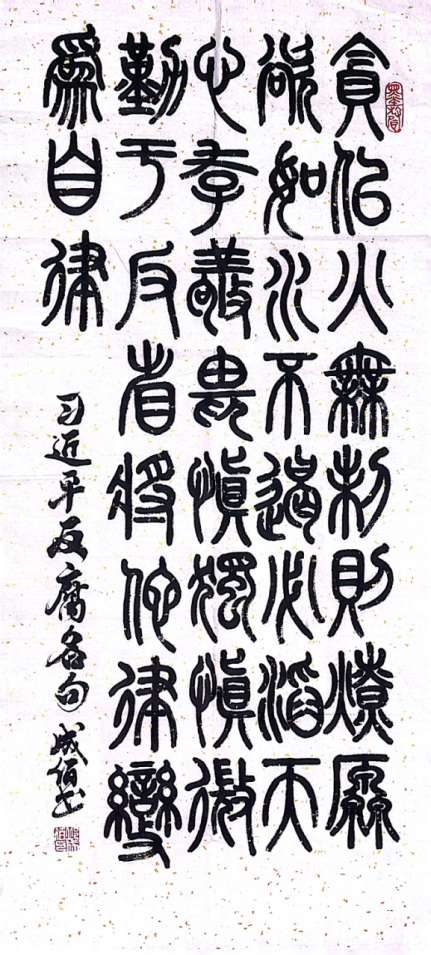 貪似火無制則燎原
欲如水不遏必滔天
心存敬畏慎獨慎微
勤于反省將他律變
爲自律
习近平反腐名句 成佰书